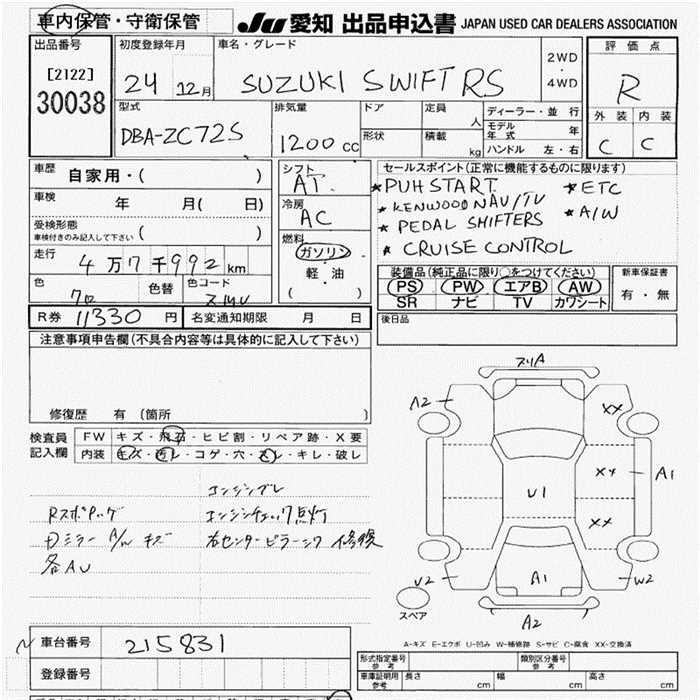 車内保管・守衛保管
JU 愛知 出品申込書 JAPAN USED CAR DEALERS ASSOCIATION
出品番号
[2122]
30038
初度登録年月
24 12月
車名・グレード
SUZUKI SWIFT RS
2WD
・
4WD
評価点
R
外装 内装
C C
型式
DBA-ZC72S
排気量
1200 cc
ドア
形状
定員
人
積載
kg
ディーラー・並行
モデル年式 年
ハンドル 左・右
車歴
自家用・( )
車検
年 月( 日)
受検形態
車検付きのみ記入して下さい ( )
走行
4万7千992km
色
クロ
色替
色コード
ZMV
シフト
AT
冷房
AC
燃料
ガソリン
・
軽・油
( )
セールスポイント(正常に機能するものに限ります)
*PUH START *ETC
*KENWOOD NAV/TV
*PEDAL SHIFTERS *A/W
*CRUISE CONTROL
装備品(純正品に限り○をつけてください)
PS PW エアB AW
SR ナビ TV カワシート
新車保証書
有・無
R券 11330 円
名変通知期限 月 日
後日品
注意事項申告欄(不具合内容等は具体的に記入して下さい)
修復歴 有 (箇所 )
検査員
記入欄
FW キズ・飛石・ヒビ割・リペア跡・X要
内装 キズ・汚レ・コゲ・穴・スレ・キレ・破レ
エンジンブレ
Rスポ アゲ
エンジンチェック点灯
Dミラー A/W キズ
右センターピラーシワ 修後
各AU
スリA
A2
XX
XX
A1
XX
U1
U2
A1
W2
A2
スペア
A-キズ E-エクボ U-凹み W-補修跡 S-サビ C-腐食 XX-交換済
車台番号
215831
登録番号
形式指定番号
参考
類別区分番号
参考
車庫証明用
参考
長さ cm
幅 cm
高さ cm